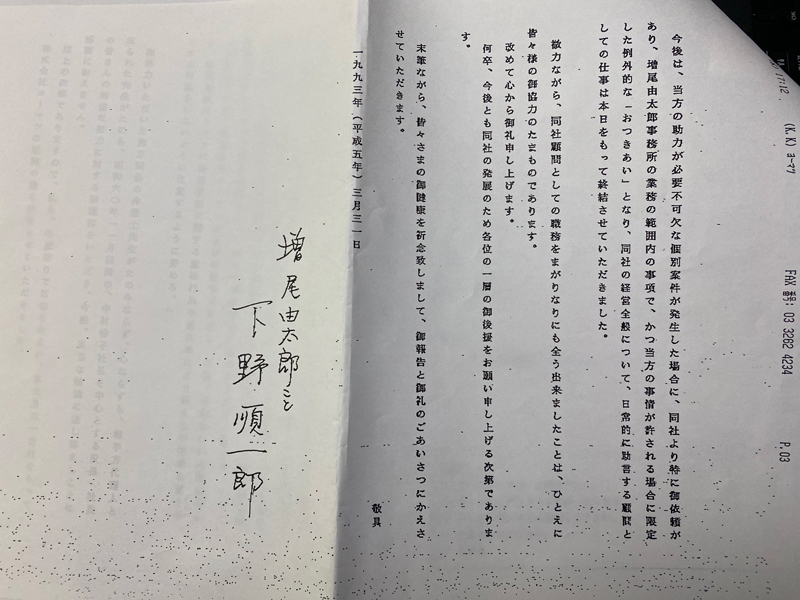 17:12
(K.K) ヨーマク
FAX 番号: 03 3262 4234
P.03
今後は、当方の助力が必要不可欠な個別案件が発生した場合に、同社より特に御依頼が
あり、増尾由太郎事務所の業務の範囲内の事項で、かつ当方の事情が許される場合に限定
した例外的な「おつきあい」となり、同社の経営全般について、日常的に助言する顧問と
しての仕事は本日をもって終結させていただきました。
微力ながら、同社顧問としての職務をまがりなりにも全う出来ましたことは、ひとえに
皆々様の御協力のたまものであります。
改めて心から御礼申し上げます。
何卒、今後とも同社の発展のため各位の一層の御後援をお願い申し上げる次第でありま
す。
末筆ながら、皆々さまの御健康を祈念致しまして、御報告と御礼のごあいさつにかえさ
せていただきます。
敬具
一九九三年（平成五年）三月三一日
増尾由太郎こと
下野順一郎